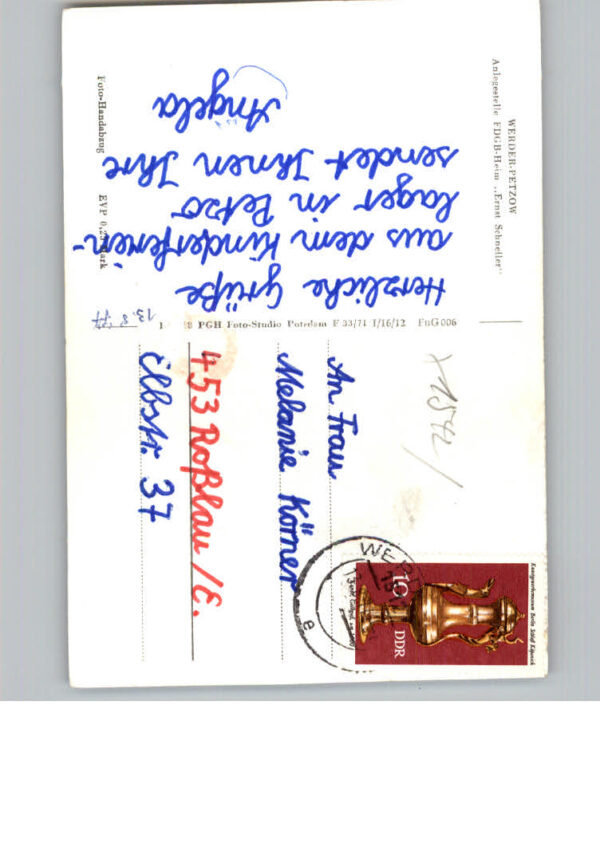 WERDER-PETZOW
Anlegestelle FDGB-Heim „Ernst Schneller"
Herzliche Grüße
aus dem Kinderferien-
lager in Petzo
sendet Ihnen Ihre
Angela
Foto-Handabzug EVP 0,25 Mark
13.8.77
PGH Foto-Studio Potsdam F 33/71 I/16/12 FuG 006
An Frau
Melanie Körner
453 Roßlau/E.
Elbstr. 37
Kunstgewerbemuseum Berlin Schloß Köpenick
10
DDR
WER
e